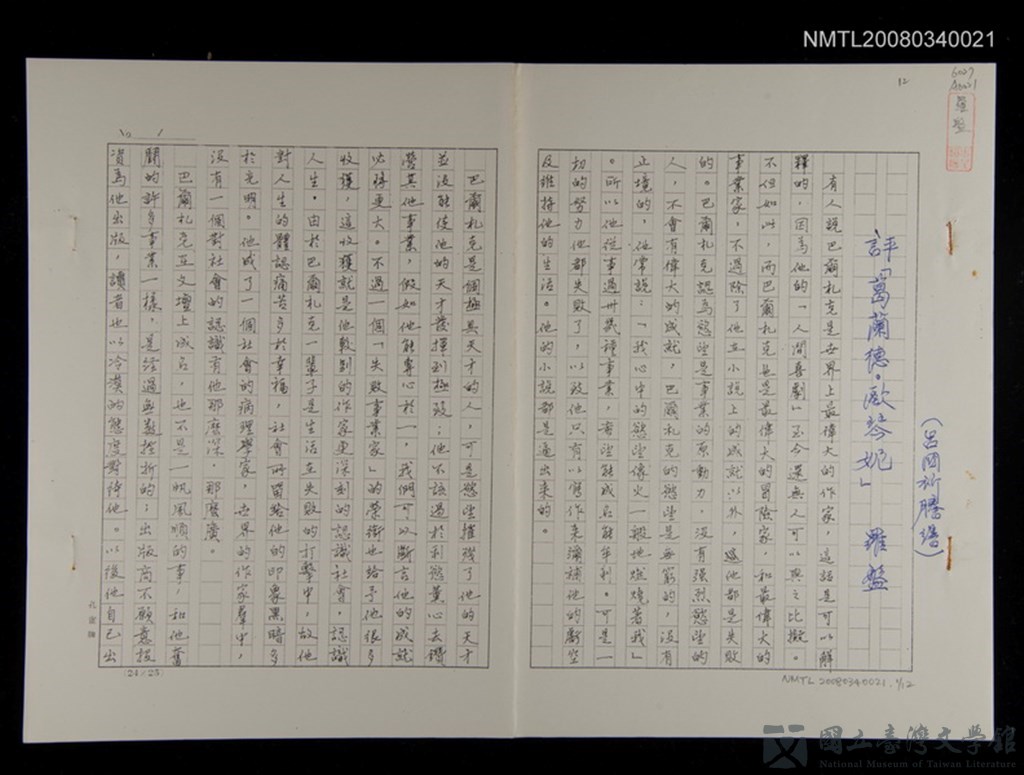 NMTL20080340021
12
羅盤
評「葛蘭德·歐琴妮」 羅盤
(呂國新謄繕)
有人說巴爾札克是世界上最偉大的作家,這話是可以解
釋的,因為他的「人間喜劇」至今還無人可以與之比擬。
不但如此,而巴爾札克也是最偉大的冒險家,和最偉大的
事業家,不過除了他在小說上的成就以外,其他都是失敗
的。巴爾札克認為慾望是事業的原動力,沒有强烈慾望的
人,不會有偉大的成就,巴爾札克的慾望是無窮的,沒有
止境的,他常說:「我心中的慾望像火一般地燃燒著我」
。所以他從事過卅幾種事業,希望能成名能牟利。可是一
切的努力他都失敗了,以致他只有以寫作來彌補他的虧空
及維持他的生活。他的小說都是逼出來的。
巴爾札克是個極具天才的人,可是慾望摧殘了他的天才
並沒能使他的天才發揮到極致;他不該過於利慾薰心去鑽
營其他事業,假如他能專心於一,我們可以斷言他的成就
必將更大。不過一個「失敗事業家」的榮銜也給予他很多
收穫,這收穫就是他較別的作家更深刻的認識社會,認識
人生。由於巴爾札克一輩子是生活在失敗的打擊中,故他
對人生的體認痛苦多於幸福,社會所留給他的印象黑暗多
於光明。他成了一個社會的病理學家,世界的作家羣中,
沒有一個對社會的認識有他那麼深,那麼廣。
巴爾札克在文壇上成名,也不是一帆風順的事,和他奮
鬪的許多事業一樣,是經過無數挫折的;出版商不願意投
資為他出版,讀者也以冷漠的態度對待他。以後他自己出
(24×25)
NMTL 20080340021, 1/12
國立臺灣文學館
National Museum of Taiwan Literature